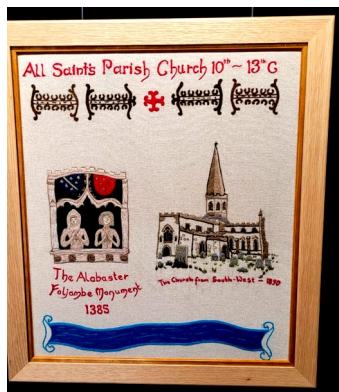 All Saints Parish Church 10th ~ 13th C
The Alabaster
Foljambe Monument
1385
The Church from South-West - 1890